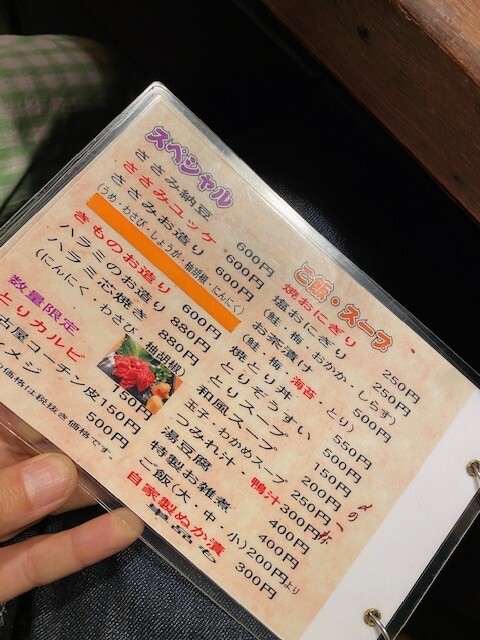 スペシャル
ささみ納豆 600円
ささみユッケ 600円
ささみお造り 600円
(うめ・わさび・しょうが・柚胡椒・にんにく)
きものお造り 600円
ハラミのお造り 880円
ハラミ芯焼き 880円
(にんにく・わさび・柚胡椒)
数量限定
とりカルビ 150円
古屋コーチン皮 150円
ナメジ 500円
の価格は税抜き価格です。
ご飯・スープ
焼おにぎり 250円
塩おにぎり 250円
(鮭・梅・おかか・しらす)
お茶漬け 500円
(鮭・梅・海苔・とり)
焼とり丼 550円
とりぞうすい 500円
とりスープ 150円
和風スープ 200円
玉子・わかめスープ 250円
つみれ汁・鴨汁 300円
湯豆腐 400円
特製お雑煮 400円
ご飯(大・中・小) 200円より
自家製ぬか漬 300円